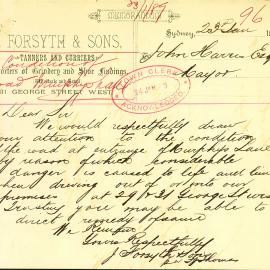 MEMORANDUM
FORSYTH & SONS,
TANNERS AND CURRIERS
Importers of Grindery and Shoe Findings
GEORGE STREET WEST
Sydney, 23 Jan 96
John Harris Esq
Mayor
TOWN CLERK
ACKNOWLEDGED
Dear Sir
We would respectfully draw
your attention to the condition
of the road at entrance of Murphys Lane
by reason of which considerable
danger is caused to life and limb
when driving out of or into our
premises as 29 & 31 George St West
Trusting you may be able to
direct remedy of same
We Remain
Yours Respectfully
J Forsyth & Sons